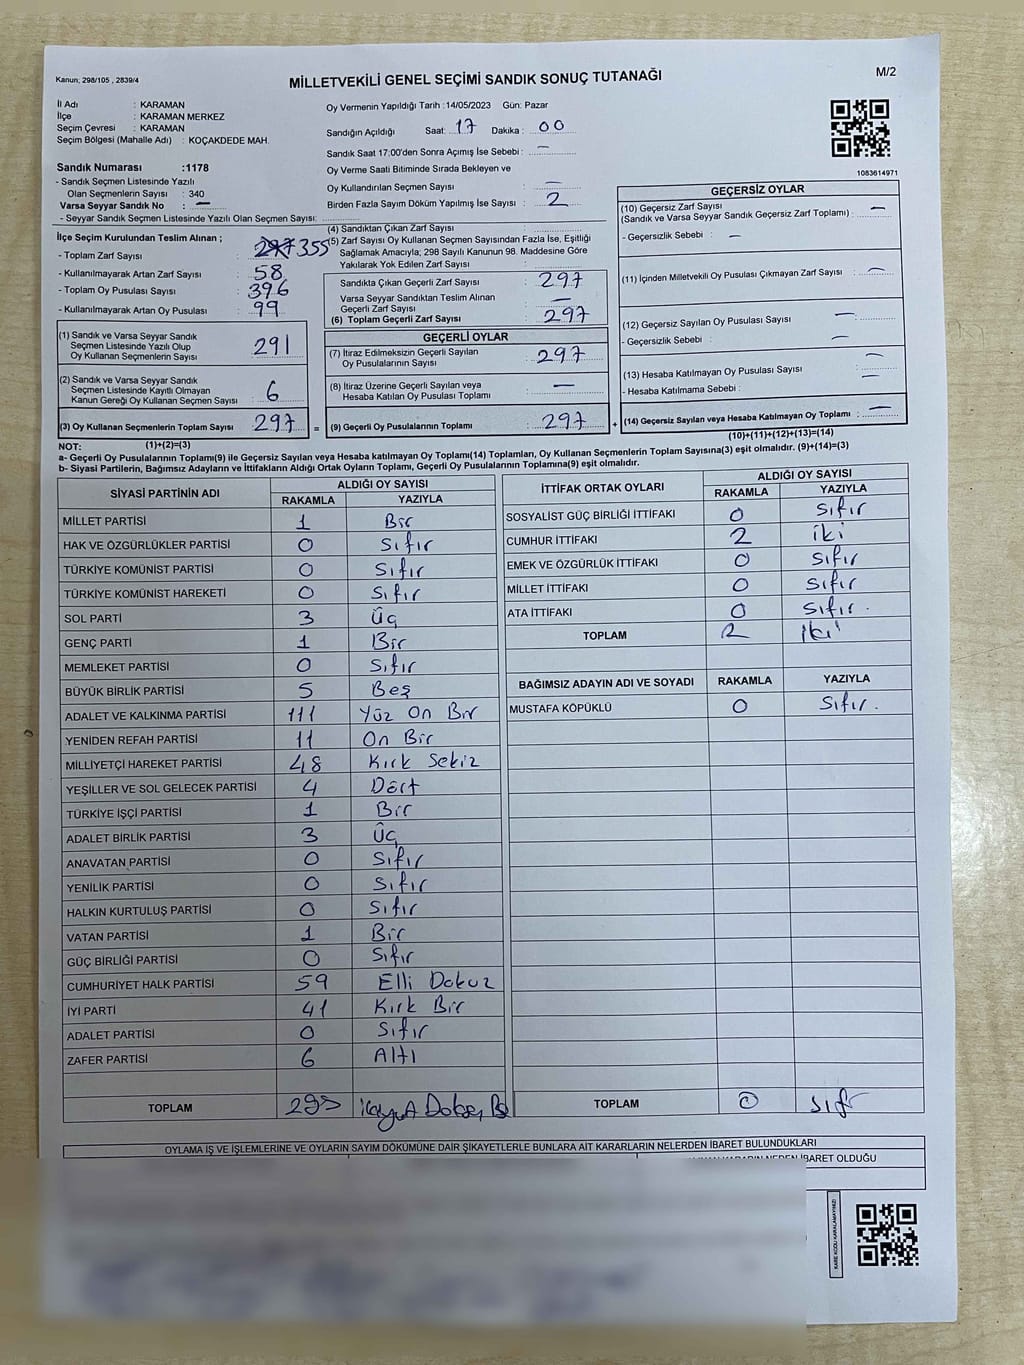 Kanun; 298/105 , 2839/4
MİLLETVEKİLİ GENEL SEÇİMİ SANDIK SONUÇ TUTANAĞI
M/2
İl Adı : KARAMAN
İlçe : KARAMAN MERKEZ
Seçim Çevresi : KARAMAN
Seçim Bölgesi (Mahalle Adı) : KOÇAKDEDE MAH.
Sandık Numarası :1178
- Sandık Seçmen Listesinde Yazılı
Olan Seçmenlerin Sayısı : 340
Varsa Seyyar Sandık No : —
- Seyyar Sandık Seçmen Listesinde Yazılı Olan Seçmen Sayısı:
Oy Vermenin Yapıldığı Tarih :14/05/2023 Gün: Pazar
Sandığın Açıldığı Saat: 17 Dakika : 00
Sandık Saat 17:00'den Sonra Açımış İse Sebebi : —
Oy Verme Saati Bitiminde Sırada Bekleyen ve
Oy Kullandırılan Seçmen Sayısı : —
Birden Fazla Sayım Döküm Yapılmış İse Sayısı : 2
1083614971
İlçe Seçim Kurulundan Teslim Alınan ;
- Toplam Zarf Sayısı : 297 355
- Kullanılmayarak Artan Zarf Sayısı : 58
- Toplam Oy Pusulası Sayısı : 396
- Kullanılmayarak Artan Oy Pusulası : 99
(1) Sandık ve Varsa Seyyar Sandık
Seçmen Listesinde Yazılı Olup
Oy Kullanan Seçmenlerin Sayısı : 291
(2) Sandık ve Varsa Seyyar Sandık
Seçmen Listesinde Kayıtlı Olmayan
Kanun Gereği Oy Kullanan Seçmen Sayısı : 6
(3) Oy Kullanan Seçmenlerin Toplam Sayısı : 297
(4) Sandıktan Çıkan Zarf Sayısı :
(5) Zarf Sayısı Oy Kullanan Seçmen Sayısından Fazla İse, Eşitliği
Sağlamak Amacıyla; 298 Sayılı Kanunun 98. Maddesine Göre
Yakılarak Yok Edilen Zarf Sayısı :
Sandıkta Çıkan Geçerli Zarf Sayısı : 297
Varsa Seyyar Sandıktan Teslim Alınan
Geçerli Zarf Sayısı : —
(6) Toplam Geçerli Zarf Sayısı : 297
GEÇERLİ OYLAR
(7) İtiraz Edilmeksizin Geçerli Sayılan
Oy Pusulalarının Sayısı : 297
(8) İtiraz Üzerine Geçerli Sayılan veya
Hesaba Katılan Oy Pusulası Toplamı : —
= (9) Geçerli Oy Pusulalarının Toplamı : 297 +
GEÇERSİZ OYLAR
(10) Geçersiz Zarf Sayısı
(Sandık ve Varsa Seyyar Sandık Geçersiz Zarf Toplamı) : —
- Geçersizlik Sebebi : —
(11) İçinden Milletvekili Oy Pusulası Çıkmayan Zarf Sayısı : —
(12) Geçersiz Sayılan Oy Pusulası Sayısı : —
- Geçersizlik Sebebi : —
(13) Hesaba Katılmayan Oy Pusulası Sayısı : —
- Hesaba Katılmama Sebebi : —
(14) Geçersiz Sayılan veya Hesaba Katılmayan Oy Toplamı : —
NOT: (1)+(2)=(3)
(10)+(11)+(12)+(13)=(14)
a- Geçerli Oy Pusulalarının Toplamı(9) ile Geçersiz Sayılan veya Hesaba katılmayan Oy Toplamı(14) Toplamları, Oy Kullanan Seçmenlerin Toplam Sayısına(3) eşit olmalıdır. (9)+(14)=(3)
b- Siyasi Partilerin, Bağımsız Adayların ve İttifakların Aldığı Ortak Oyların Toplamı, Geçerli Oy Pusulalarının Toplamına(9) eşit olmalıdır.
SİYASİ PARTİNİN ADI ALDIĞI OY SAYISI
RAKAMLA YAZIYLA
MİLLET PARTİSİ 1 Bir
HAK VE ÖZGÜRLÜKLER PARTİSİ 0 Sıfır
TÜRKİYE KOMÜNİST PARTİSİ 0 Sıfır
TÜRKİYE KOMÜNİST HAREKETİ 0 Sıfır
SOL PARTİ 3 Üç
GENÇ PARTİ 1 Bir
MEMLEKET PARTİSİ 0 Sıfır
BÜYÜK BİRLİK PARTİSİ 5 Beş
ADALET VE KALKINMA PARTİSİ 111 Yüz On Bir
YENİDEN REFAH PARTİSİ 11 On Bir
MİLLİYETÇİ HAREKET PARTİSİ 48 Kırk Sekiz
YEŞİLLER VE SOL GELECEK PARTİSİ 4 Dört
TÜRKİYE İŞÇİ PARTİSİ 1 Bir
ADALET BİRLİK PARTİSİ 3 Üç
ANAVATAN PARTİSİ 0 Sıfır
YENİLİK PARTİSİ 0 Sıfır
HALKIN KURTULUŞ PARTİSİ 0 Sıfır
VATAN PARTİSİ 1 Bir
GÜÇ BİRLİĞİ PARTİSİ 0 Sıfır
CUMHURİYET HALK PARTİSİ 59 Elli Dokuz
İYİ PARTİ 41 Kırk Bir
ADALET PARTİSİ 0 Sıfır
ZAFER PARTİSİ 6 Altı
TOPLAM 295
İTTİFAK ORTAK OYLARI ALDIĞI OY SAYISI
RAKAMLA YAZIYLA
SOSYALİST GÜÇ BİRLİĞİ İTTİFAKI 0 Sıfır
CUMHUR İTTİFAKI 2 iki
EMEK VE ÖZGÜRLÜK İTTİFAKI 0 Sıfır
MİLLET İTTİFAKI 0 Sıfır
ATA İTTİFAKI 0 Sıfır.
TOPLAM 2 iki
BAĞIMSIZ ADAYIN ADI VE SOYADI RAKAMLA YAZIYLA
MUSTAFA KÖPÜKLÜ 0 Sıfır.
TOPLAM 0 Sıfır
OYLAMA İŞ VE İŞLEMLERİNE VE OYLARIN SAYIM DÖKÜMÜNE DAİR ŞİKAYETLERLE BUNLARA AİT KARARLARIN NELERDEN İBARET BULUNDUKLARI
İBARET OLDUĞU
KARE KODU KARALAMAYINIZ!